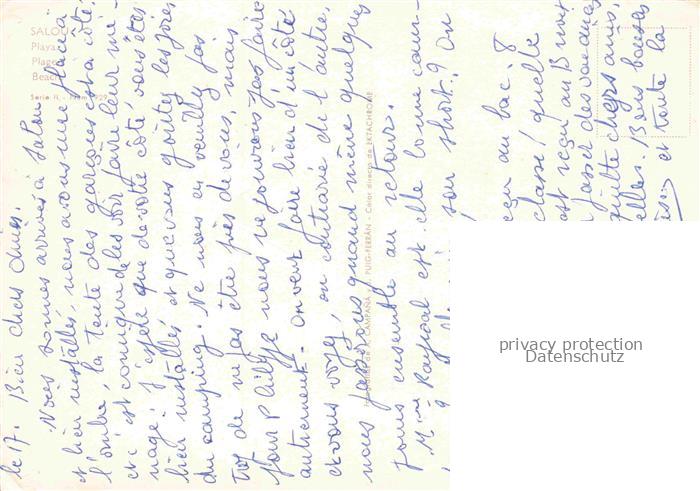 SALOU
Playa
Plage
Beach
Serie II
le 17. Bien chers amis.
Nous sommes arrivés à Salou
et bien installés, nous avons une place à
l'ombre, la tente des garçons est à côté.
et c'est comique de les voir faire leur mé-
nage. J'espère que de votre côté, vous êtes
bien installés et que vous goûtez les joies
du camping. Ne nous en veuillez pas
trop de ne pas être près de vous, mais
pour Philippe nous ne pouvons pas faire
autrement. On veut faire bien d'un côté
et vous voyez, au contraire de l'autre.
nous passerons quand même quelques
jours ensemble au retour.
Mme Raynal est-elle bonne cam-
son short? On
reçu au bac. 8
classe! quelle
est reçu au B
passer des vacances
quitte chers amis,
elles. Bons baisers
et toute la
CAMPAÑA PUIG-FERRÁN - Color directo de EKTACHROME
privacy protection
Datenschutz